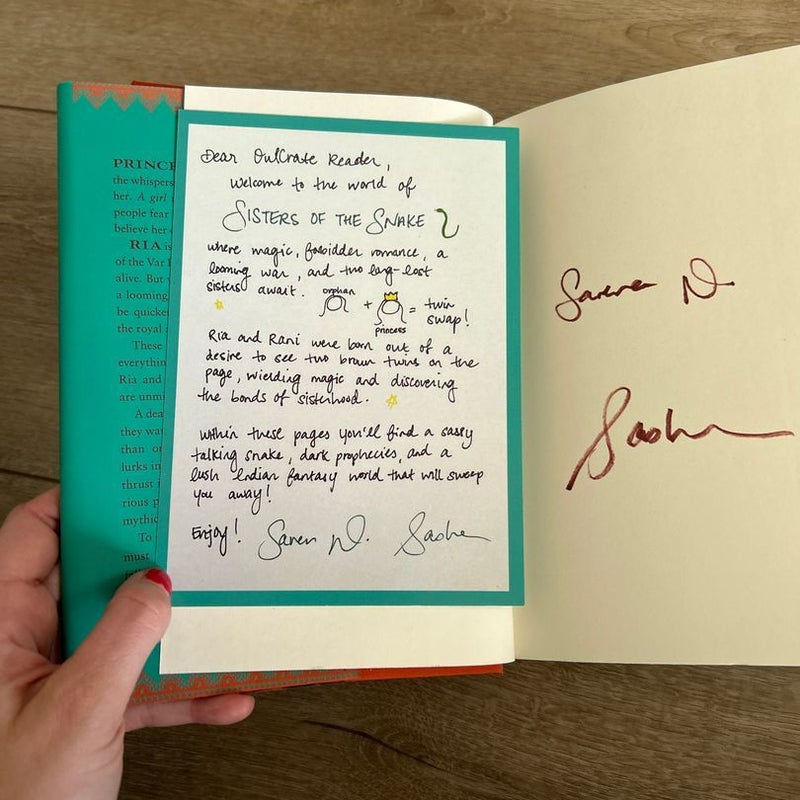 PRINC
the whispers
her. A girl
people fear
believe her
RIA is
of the Var
alive. But
a looming
be quicker
the royal
These
everythin
Ria and
are unm
A dea
they wa
than o
lurks in
thrust i
rious p
mythic
To
must
Dear OwlCrate Reader,
welcome to the world of
SISTERS OF THE SNAKE
where magic, forbidden romance, a
looming war, and two long-lost
sisters await.
orphan
+
princess
= twin
swap!
Ria and Rani were born out of a
desire to see two brown twins on the
page, wielding magic and discovering
the bonds of sisterhood.
Within these pages you'll find a sassy
talking snake, dark prophecies, and a
lush Indian fantasy world that will sweep
you away!
Enjoy! Sarena N. Sasha
Sarena N.
Sasha